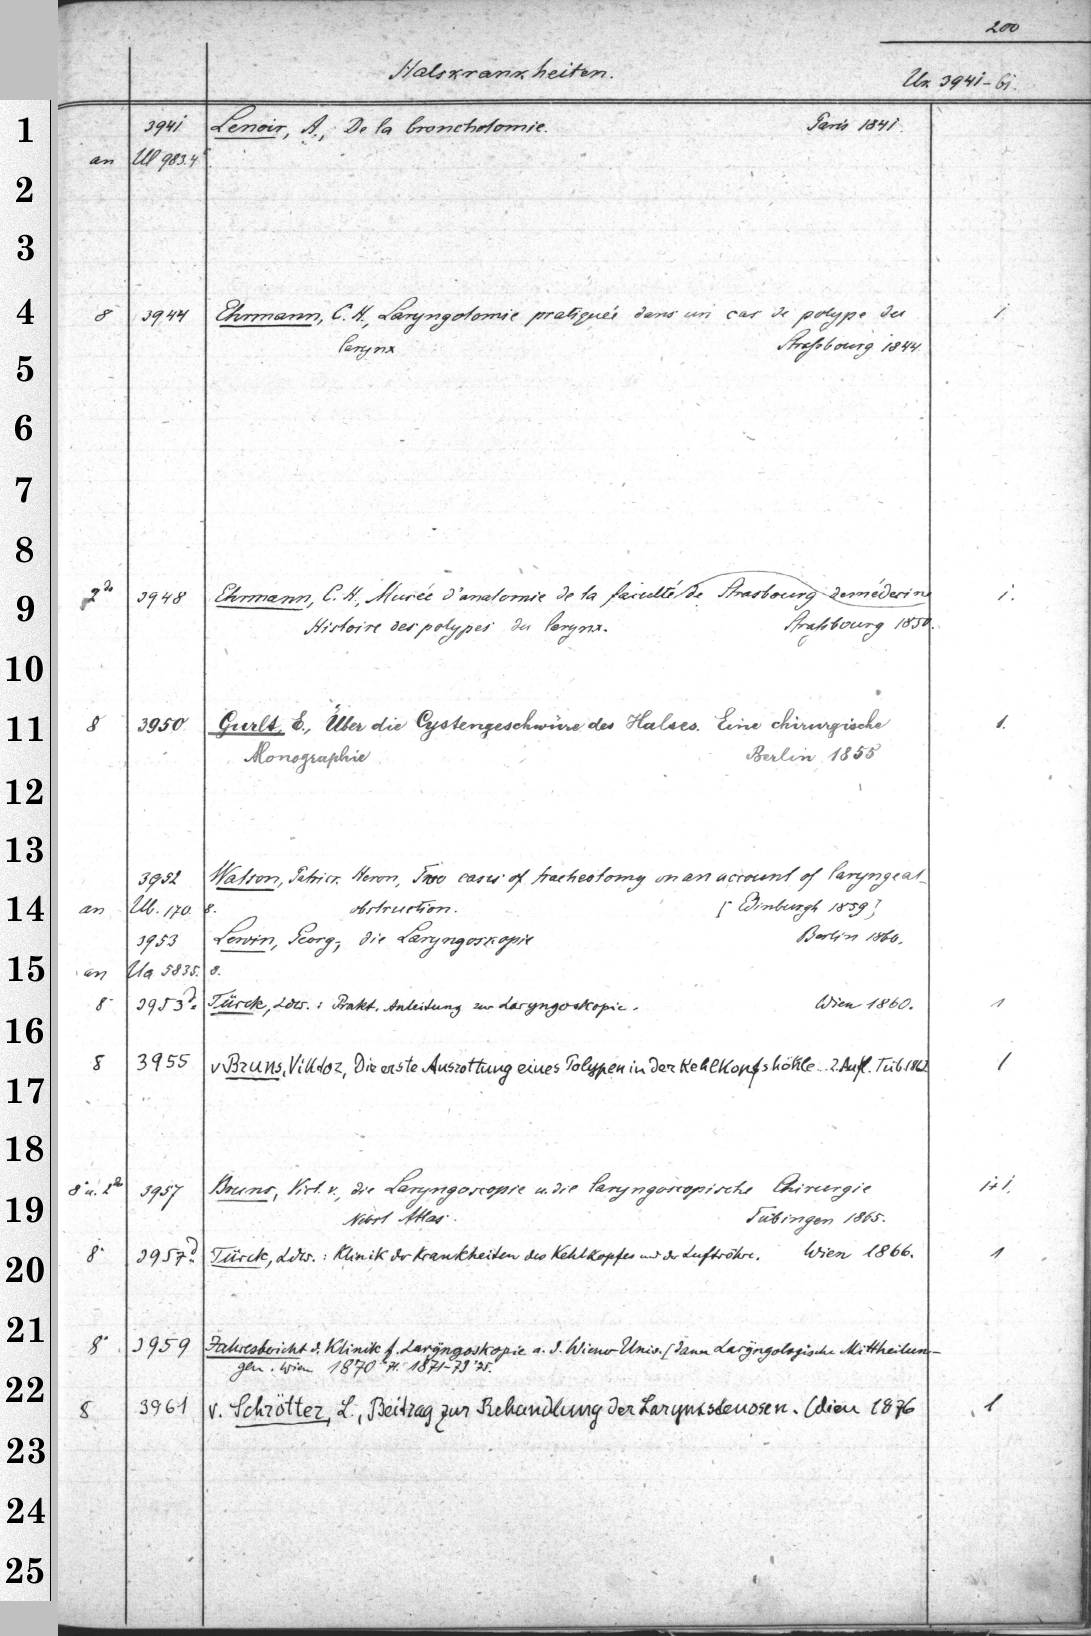 200
Halskrankheiten.
Ux. 3941-61.
1
3941 Lenoir, A., De la bronchotomie. Paris 1841.
an Ul 983.4
2
3
4
8 3944 Ehrmann, C. H., Laryngotomie pratiquée dans un cas de polype du 1
larynx Straßbourg 1844.
5
6
7
8
9
2° 3948 Ehrmann, C. H., Musée d'anatomie de la faculté de Strasbourg de médecine 1.
Histoire des polypes du larynx. Straßbourg 1850.
10
11
8 3950 Gurlt, E., Über die Cystengeschwüre des Halses. Eine chirurgische 1.
Monographie Berlin 1855
12
13
3952 Watson, Patrick Heron, Two cases of tracheotomy on an account of laryngeal
14
an Ub. 170 8. obstruction. [Edinburgh 1859]
3953 Lewin, Georg, die Laryngoskopie Berlin 1860.
15
an Ua 5835. 8.
8° 3953a Türck, Ldw.: Prakt. Anleitung zur Laryngoskopie. Wien 1860. 1
16
8 3955 v Bruns, Viktor, Die erste Ausrottung eines Polypen in der Kehlkopfshöhle. 2. Aufl. Tüb. 1862 1
17
18
8° u. 2° 3957 Bruns, Vict. v., die Laryngoscopie u. die laryngoscopische Chirurgie 1+1.
19
Nebst Atlas. Tübingen 1865.
8° 3957a Türck, Ldw.: Klinik der Krankheiten des Kehlkopfes und der Luftröhre. Wien 1866. 1
20
21
8° 3959 Jahresbericht d. Klinik f. Laryngoskopie a. d. Wiener Univ. [dann Laryngologische Mittheilun-
gen. Wien 1870-71. 1871-73 '75.
22
8 3961 v. Schrötter, L., Beitrag zur Behandlung der Larynxstenosen. Wien 1876 1
23
24
25